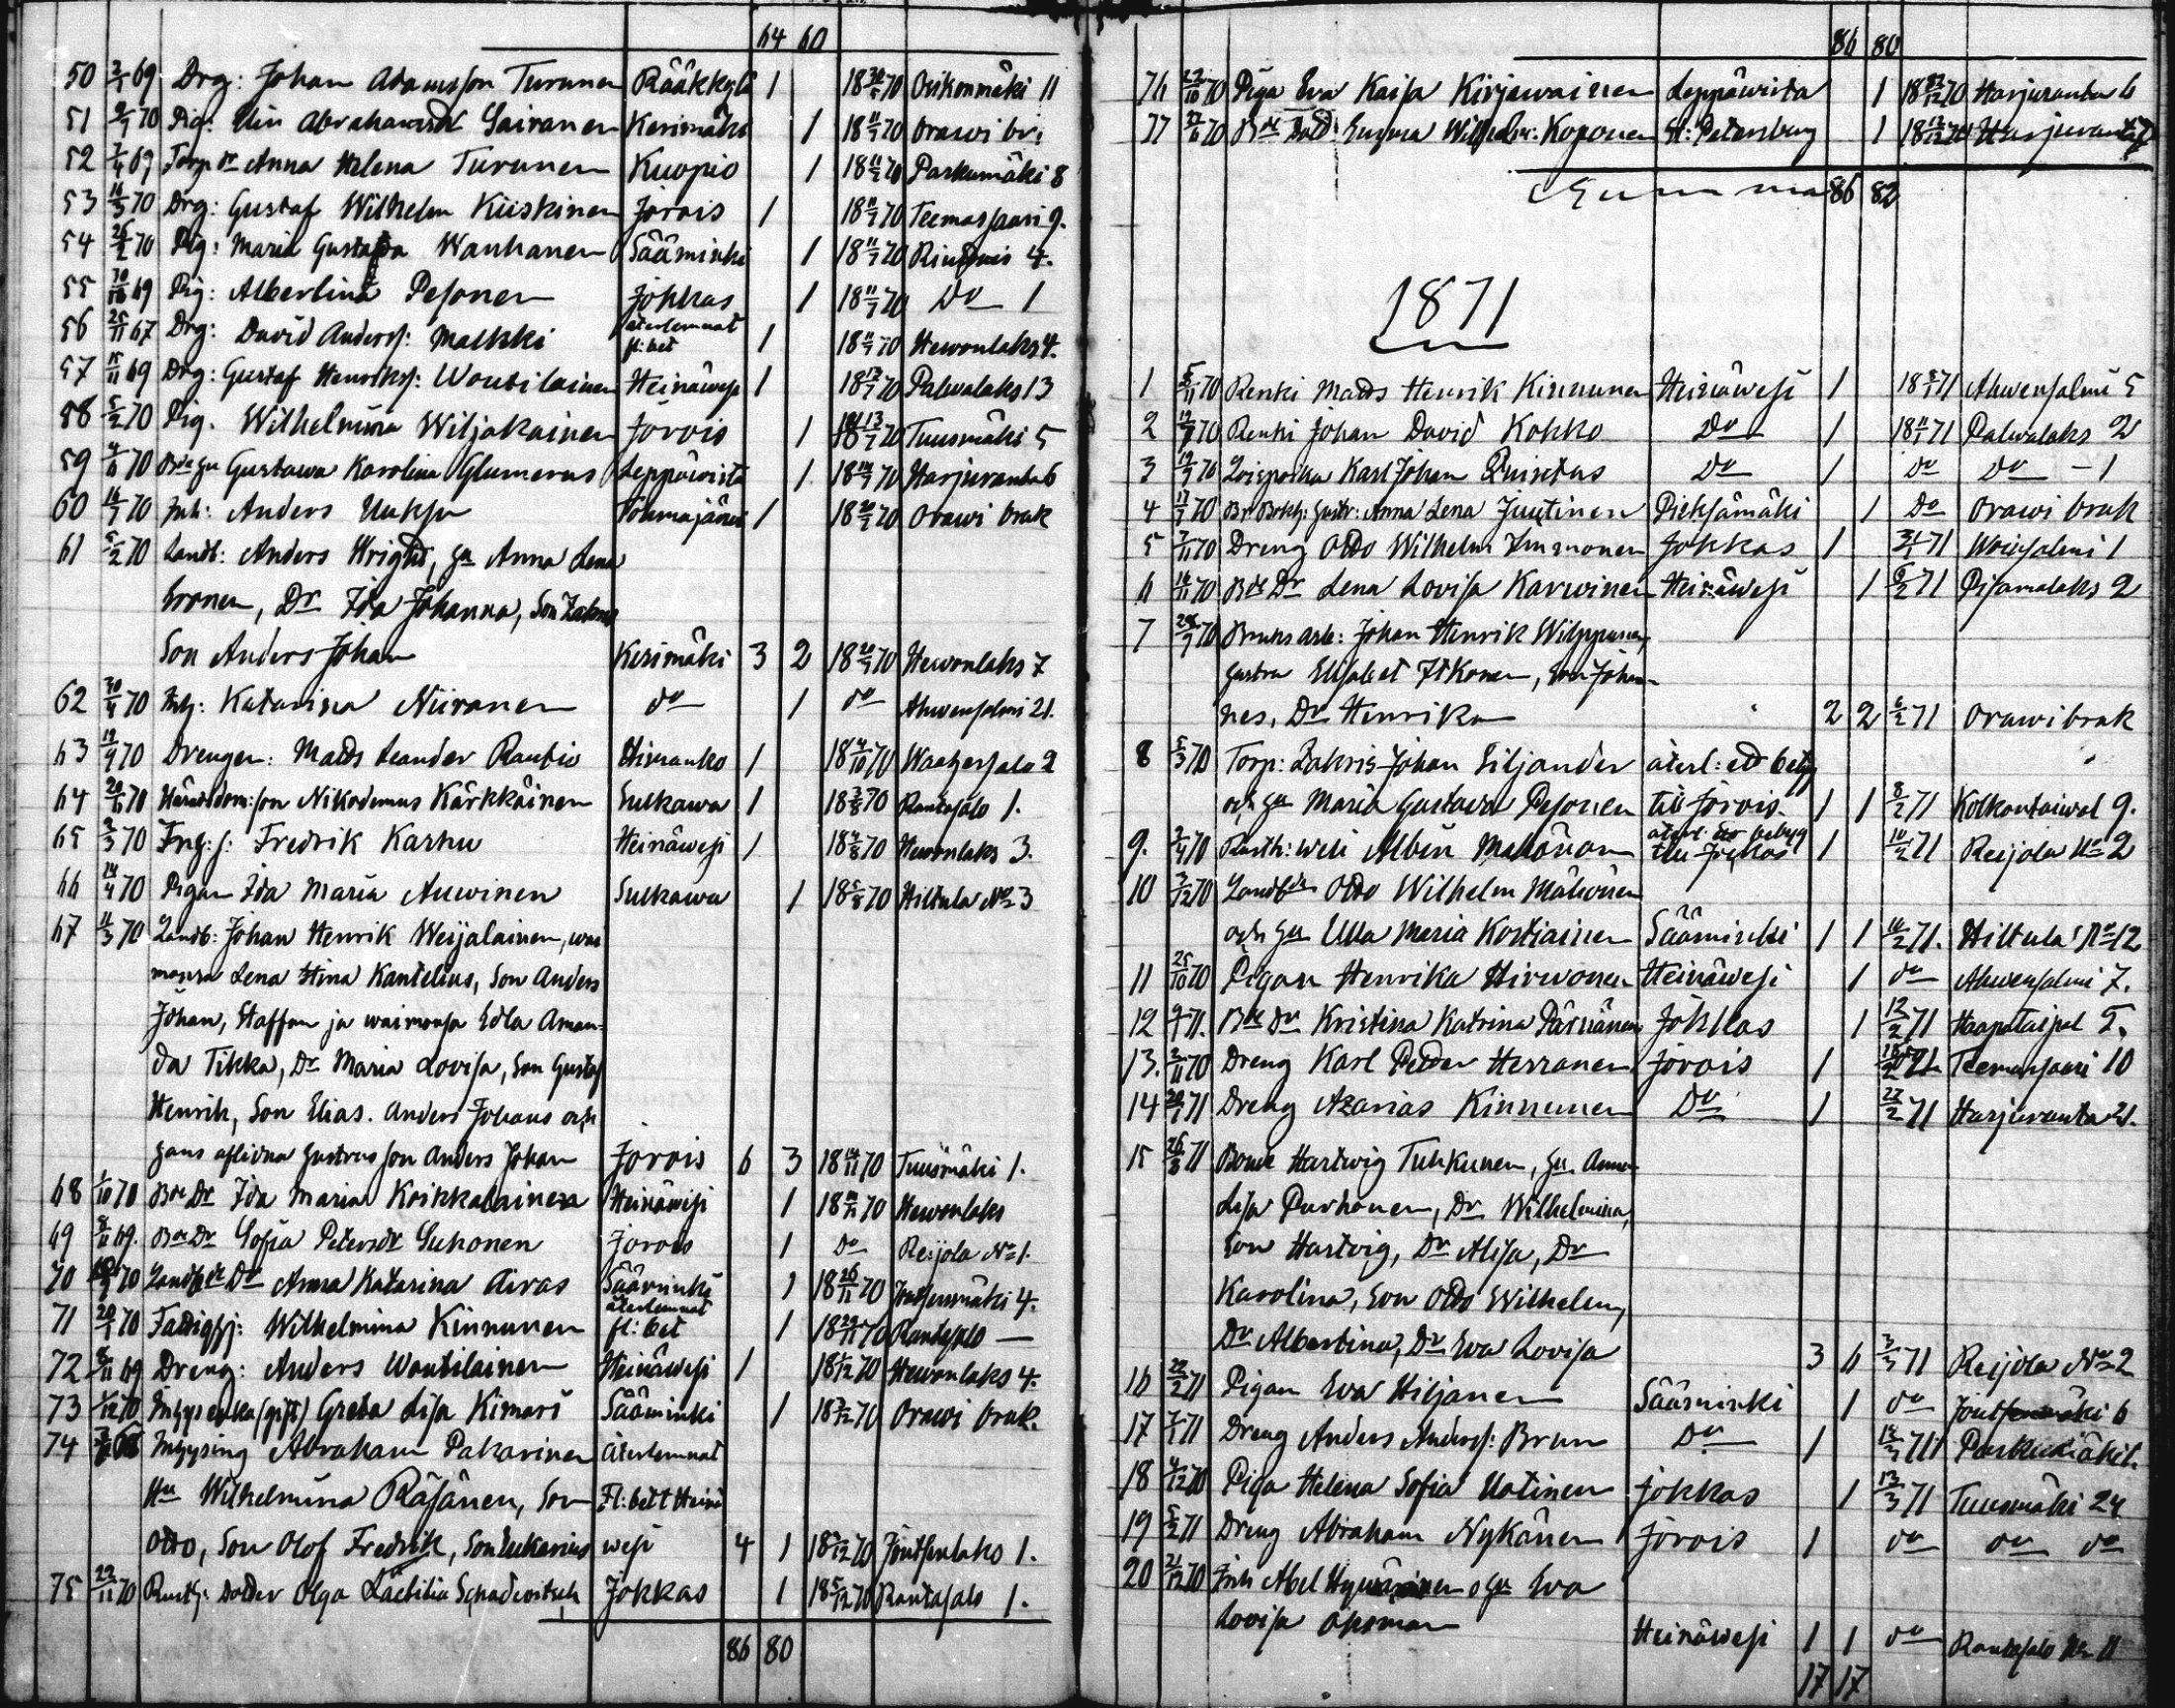 64 60
50 2/1 69 Drg: Johan Adamsson Turunen Rääkkylä 1 18 30/5 70 Oikonmäki 11
51 9/1 70 Pig: Elin Abrahamsdr Sairanen Kerimäki 1 18 11/7 70 Orawi bri
52 7/4 69 Torp dr Anna Helena Turunen Kuopio 1 18 11/7 70 Paskumäki 8
53 16/3 70 Drg: Gustaf Wilhelm Kiiskinen Jorois 1 18 11/7 70 Teemassaari 9.
54 26/2 70 Pig: Maria Gustava Wanhanen Sääminki 1 18 11/7 70 4.
55 30/10 69 Pig: Albertina Pesonen Jokkas 1 18 11/7 70 Do 1
56 25/11 67 Drg: David Anderss: Malkki återlemnat fl: bet 1 18 11/7 70 Hewonlaks 4.
57 15/11 69 Drg: Gustaf Henrikss: Woutilainen Heinäwesi 1 18 12/7 70 Palwalaks 13
58 5/2 70 Pig. Wilhelmina Wiljakainen Jorois 1 18 13/7 70 Tuusmäki 5
59 4/6 70 Bde gu Gustawa Karolina Glumerus Leppäwirta 1 18 14/7 70 Harjuranta 6
60 16/7 70 Inh: Anders Tohmajärwi 1 18 20/7 70 Orawi bruk
61 5/2 70 Landb: Anders Wright, gu Anna Lena
Eronen, Dr Ida Johanna, Son
Son Anders Johan Kerimäki 3 2 18 20/7 70 Hewonlaks 7
62 30/4 70 Inh: Katarina Niiranen do 1 do Ahwensalmi 21.
63 19/9 70 Drengen: Matts Leander Rautio Himanko 1 18 4/10 70 Waahersalo 2
64 20/6 70 Nikodemus Kärkkäinen Sulkawa 1 18 3/8 70 Rantasalo 1.
65 2/3 70 Fredrik Karhu Heinäwesi 1 18 4/8 70 Hewonlaks 3.
66 14/4 70 Pigan Ida Maria Auwinen Sulkawa 1 18 5/8 70 Hiltula No 3
67 11/3 70 Landb: Johan Henrik Weijalainen, wai
monsa Lena Stina Kantelius, Son Anders
Johan, Staffan ja waimonsa Edla Aman-
da Tikka, Dr Maria Lovisa, Son Gustaf
Henrik, Son Elias. Anders Johans och
hans aflidna hustrus son Anders Johan Jorois 6 3 18 14/11 70 Tuusmäki 1.
68 1/10 70 Bde Dr Ida Maria Koikkalainen Heinäwesi 1 18 70 Hewonlaks
69 8/11 69. Bde Dr Sofia Petersdr Suhonen Jorois 1 Do Reijola No 1.
70 70 Landb Dr Anna Katarina Airas Sääminki 1 18 26/11 70 Joutsenmäki 4.
71 20/1 70 Fattighj: Wilhelmina Kinnunen återlemnat fl: bet 1 18 29/11 70 Rantasalo —
72 8/11 69 Dreng: Anders Woutilainen Heinäwesi 1 18 1/12 70 Hewonlaks 4.
73 1/12 70 Inhysenka (gift) Greta Lisa Kimari Sääminki 1 18 3/12 70 Orawi bruk.
74 68 Inhysing Abraham Pakarinen återlemnat
Hu Wilhelmina Räsänen, Son Fl: bet t Heinä
Otto, Son Olof Fredrik, Son Eukarius wesi 4 1 18 5/12 70 Joutsenlaks 1.
75 22/11 70 Rusth: Dotter Olga Laetitia Schadewitsch Jokkas 1 18 5/12 70 Rantasalo 1.
86 80
86 80
76 22/10 70 Piga Eva Kaisa Kirjawainen Leppäwirta 1 18 22/12 70 Harjuranta 6
77 22/6 70 Emma Wilhelm: Koponen St: Petersburg 1 18 70 Harjuranta 7
Summa 86 82
1871
1 5/11 70 Renki Matts Henrik Kinnunen Heinäwesi 1 18 71 Ahwensalmi 5
2 70 Renki Johan David Kokko Do 1 18 11/1 71 Palwalaks 2
3 19/9 70 Karl Johan Do 1 Do Do - 1
4 17/7 70 Anna Lena Juutinen Pieksämäki 1 Do Orawi bruk
5 7/11 70 Dreng Otto Wilhelm Immonen Jokkas 1 31/1 71 1
6 16/11 70 Bde Dr Lena Lovisa Karwinen Heinäwesi 1 6/2 71 Pisamalaks 2
7 28/9 70 Bruks arb: Johan Henrik Wilppunen,
hustru Elisabet Itkonen, Son Johan-
nes, Dr Henrika 2 2 6/2 71 Orawi bruk
8 5/3 70 Torp: Zakris Johan Siljander återl: ett betyg
och hu Maria Gustawa Pesonen till Jorois. 1 1 8/2 71 Kolkontaiwal 9.
9. 2/4 70 Albin Mallönen återl: betyg till Jokkas 1 10/2 71 Reijola No 2
10 3/12 70 Landb Otto Wilhelm Mälwinen
och hu Ulla Maria Kostiainen Sääminki 1 1 10/2 71. Hiltula No 12
11 25/10 70 Pigan Henrika Hirwonen Heinäwesi 1 do Ahwensalmi 7.
12 9/1 71. Bde Dr Kristina Katrina Pärnänen Jokkas 1 12/2 71 Haapataipal 5.
13. 2/11 70 Dreng Karl Petter Herranen Jorois 1 71 Teemassaari 10
14 20/1 71 Dreng Azarias Kinnunen Do 1 22/2 71 Harjuranta 21.
15 26/3 71 Bonde Hartwig Tuhkunen, hu Anna
Lisa Purhonen, Dr Wilhelmina,
Son Hartvig, Dr Alisa, Dr
Karolina, Son Otto Wilhelm,
Dr Albertina, Dr Eva Lovisa 3 6 3/3 71 Reijola No 2
16 22/2 71 Pigan Eva Hiljanen Sääminki 1 do Joutsenmäki 6
17 7/1 71 Dreng Anders Anderss: Brun Do 1 12/3 71
18 4/12 70 Piga Helena Sofia Uotinen Jokkas 1 13/3 71 Tuusmäki 24
19 5/2 71 Dreng Abraham Nykänen Jorois 1 do do do
20 21/12 70 Inh Abel Hywärinen o hu Eva
Lovisa Heinäwesi 1 1 do Rantasalo No 11
17 17